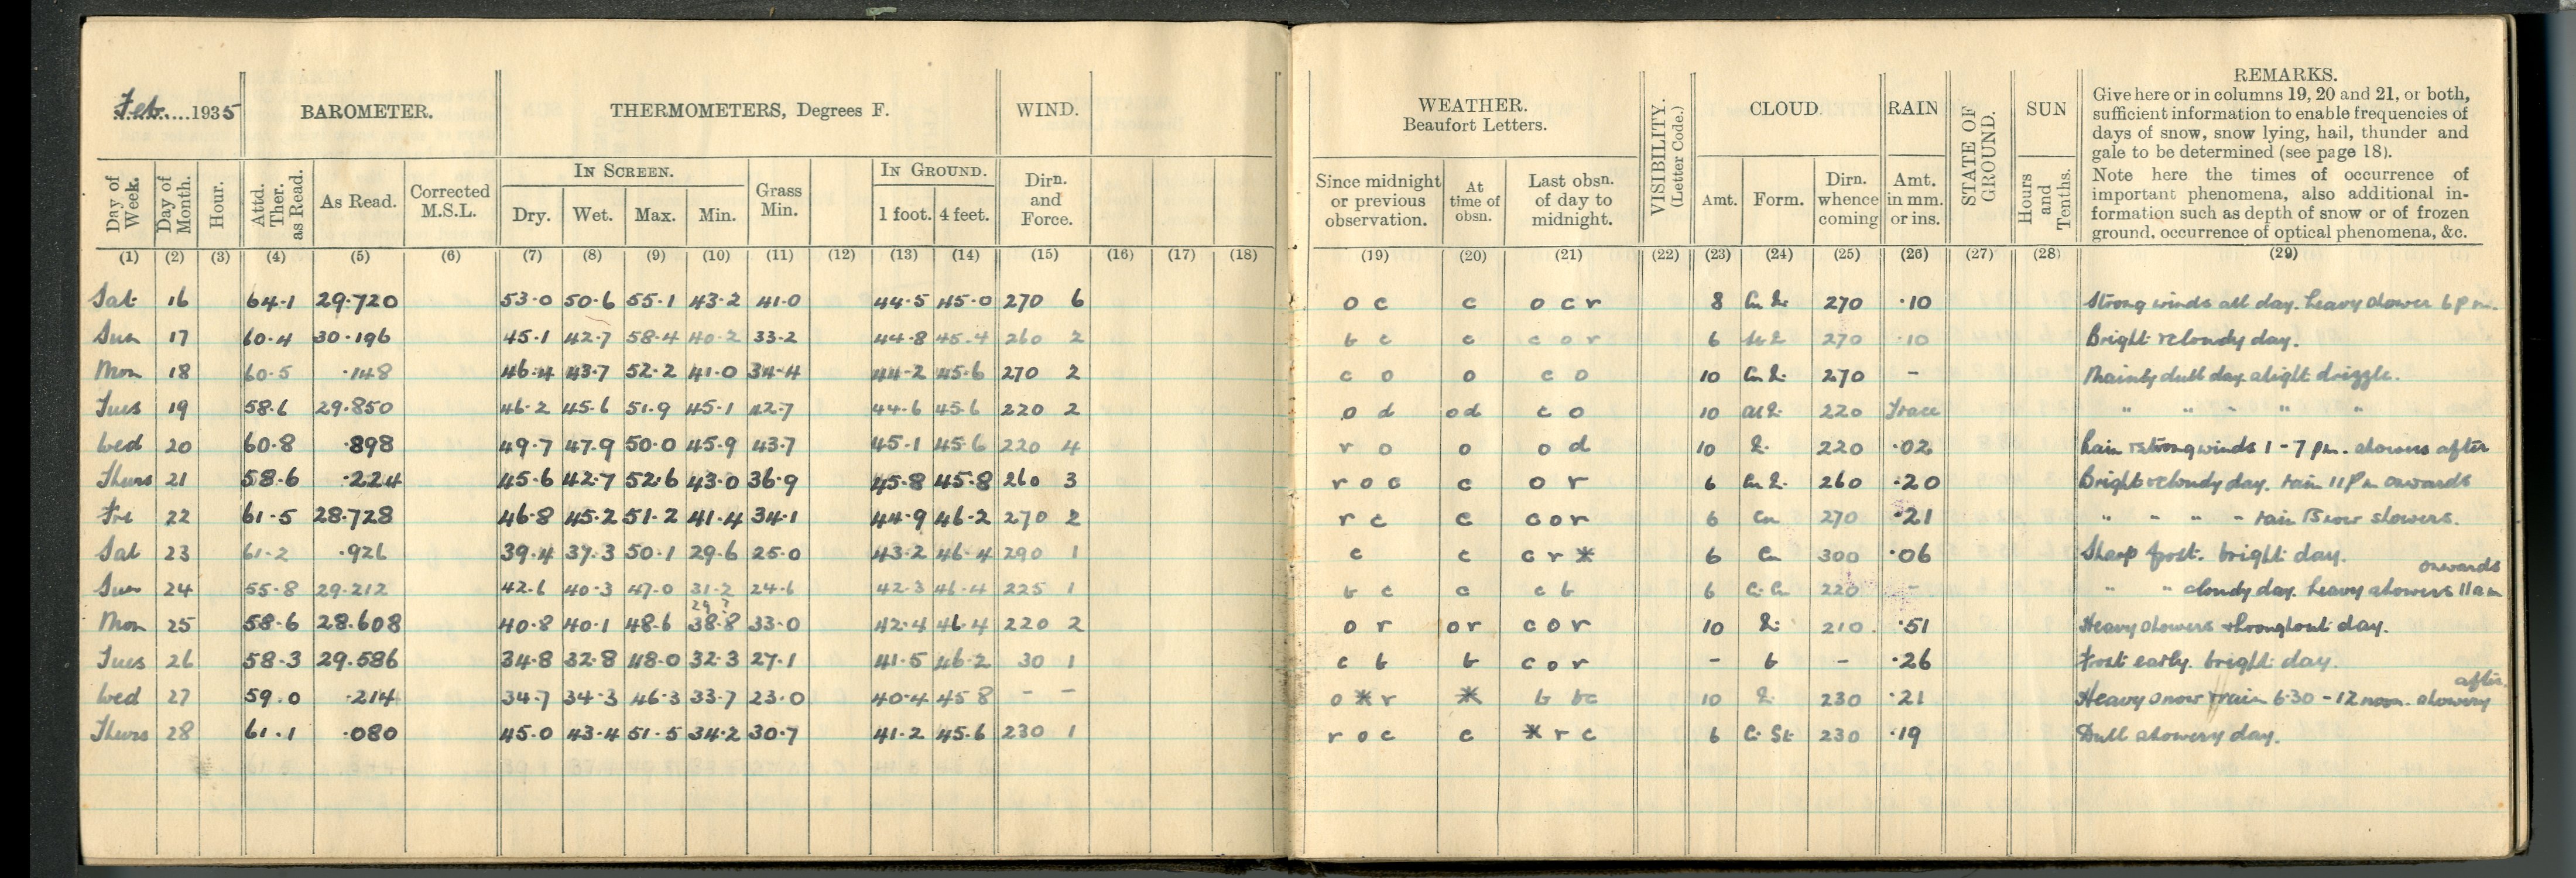 Feb.....1935
BAROMETER.
THERMOMETERS, Degrees F.
WIND.
WEATHER.
Beaufort Letters.
VISIBILITY.
(Letter Code.)
CLOUD.
RAIN
STATE OF
GROUND.
SUN
REMARKS.
Give here or in columns 19, 20 and 21, or both,
sufficient information to enable frequencies of
days of snow, snow lying, hail, thunder and
gale to be determined (see page 18).
Note here the times of occurrence of
important phenomena, also additional in-
formation such as depth of snow or of frozen
ground, occurrence of optical phenomena, &c.
Day of Week.
Day of Month.
Hour.
Attd. Ther. as Read.
As Read.
Corrected M.S.L.
IN SCREEN.
Dry. Wet. Max. Min.
Grass Min.
IN GROUND.
1 foot. 4 feet.
Dirn. and Force.
Since midnight or previous observation.
At time of obsn.
Last obsn. of day to midnight.
Amt. Form. Dirn. whence coming
Amt. in mm. or ins.
Hours and Tenths.
(1) (2) (3) (4) (5) (6) (7) (8) (9) (10) (11) (12) (13) (14) (15) (16) (17) (18) (19) (20) (21) (22) (23) (24) (25) (26) (27) (28) (29)
Sat 16 64.1 29.720 53.0 50.6 55.1 43.2 41.0 44.5 45.0 270 6 o c c o c r 8 270 .10 Strong winds all day. heavy shower 6 pm.
Sun 17 60.4 30.196 45.1 42.7 58.4 40.2 33.2 44.8 45.4 260 2 b c c c o r 6 270 .10 Bright & cloudy day.
Mon 18 60.5 .148 46.4 43.7 52.2 41.0 34.4 44.2 45.6 270 2 c o o c o 10 270 - Mainly dull day slight drizzle.
Tues 19 58.6 29.850 46.2 45.6 51.9 45.1 42.7 44.6 45.6 220 2 o d od c o 10 220 Trace " " " " "
Wed 20 60.8 .898 49.7 47.9 50.0 45.9 43.7 45.1 45.6 220 4 r o o o d 10 220 .02 Rain & strong winds 1 - 7 pm. showers after
Thurs 21 58.6 .224 45.6 42.7 52.6 43.0 36.9 45.8 45.8 260 3 r o c c o r 6 260 .20 Bright & cloudy day. rain 11 Pm onwards
Fri 22 61.5 28.728 46.8 45.2 51.2 41.4 34.1 44.9 46.2 270 2 r c c c o r 6 Cu 270 .21 " " " " rain & snow showers.
Sat 23 61.2 .926 39.4 37.3 50.1 29.6 25.0 43.2 46.4 290 1 c c c r * 6 Cu 300 .06 Sharp frost. bright day.
Sun 24 55.8 29.212 42.6 40.3 47.0 31.2 24.6 42.3 46.4 225 1 b c c c b 6 220 - " " cloudy day. heavy showers 11 am onwards
29 ?
Mon 25 58.6 28.608 40.8 40.1 48.6 38.8 33.0 42.4 46.4 220 2 o r or c o r 10 210 .51 Heavy showers throughout day.
Tues 26 58.3 29.586 34.8 32.8 48.0 32.3 27.1 41.5 46.2 30 1 c b b c o r - b - .26 Frost early. bright day.
Wed 27 59.0 .214 34.7 34.3 46.3 33.7 23.0 40.4 45.8 - - o * r * b bc 10 230 .21 Heavy snow & rain 6.30 - 12 noon. showery after.
Thurs 28 61.1 .080 45.0 43.4 51.5 34.2 30.7 41.2 45.6 230 1 r o c c * r c 6 C. St. 230 .19 Dull showery day.